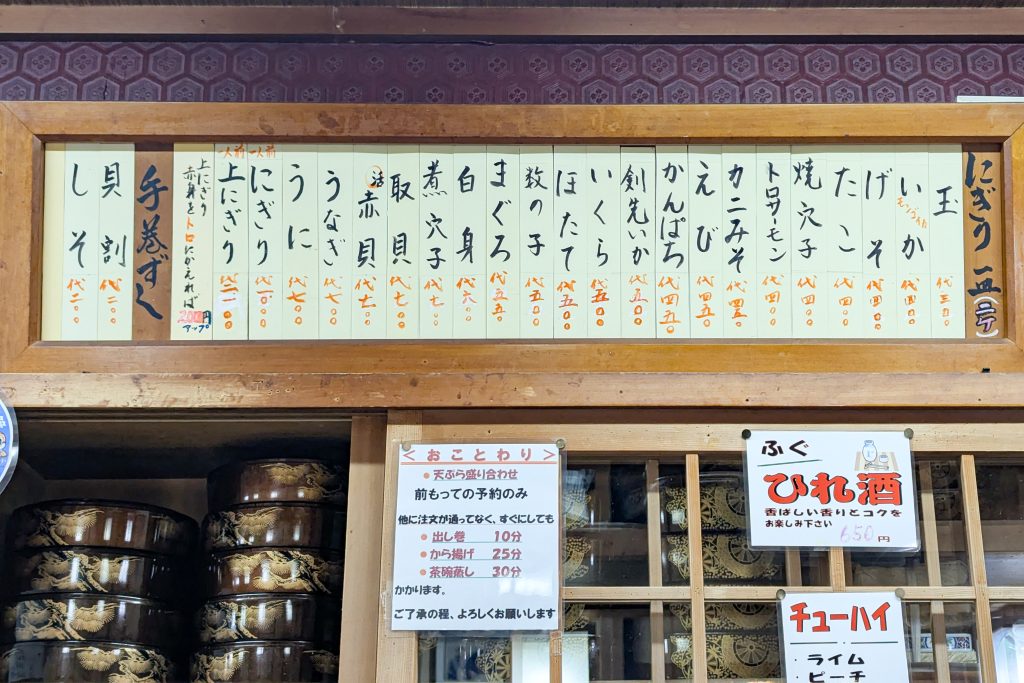 にぎり 一皿(二ケ)
玉 代三五〇
いか モンゴウイカ 代四〇〇
げそ 代四〇〇
たこ 代四〇〇
焼穴子 代四〇〇
トロサーモン 代四〇〇
カニみそ 代四五〇
えび 代四五〇
かんぱち 代四五〇
剣先いか 代五〇〇
いくら 代五〇〇
ほたて 代五〇〇
数の子 代五〇〇
まぐろ 代五五〇
白身 代六〇〇
煮穴子 代七〇〇
取貝 代七〇〇
活赤貝 代七〇〇
うなぎ 代七〇〇
うに 代七〇〇
一人前 にぎり
一人前 上にぎり
上にぎり
赤身をトロにかえれば
200円
アップ
手巻ずし
貝割 代二〇〇
しそ 代二〇〇
<おことわり>
●天ぷら盛り合わせ
前もっての予約のみ
他に注文が通ってなく、すぐにしても
●出し巻 10分
●から揚げ 25分
●茶碗蒸し 30分
かかります。
ご了承の程、よろしくお願いします
ふぐ
ひれ酒
香ばしい香りとコクを
お楽しみ下さい
650円
チューハイ
・ライム
・ピーチ